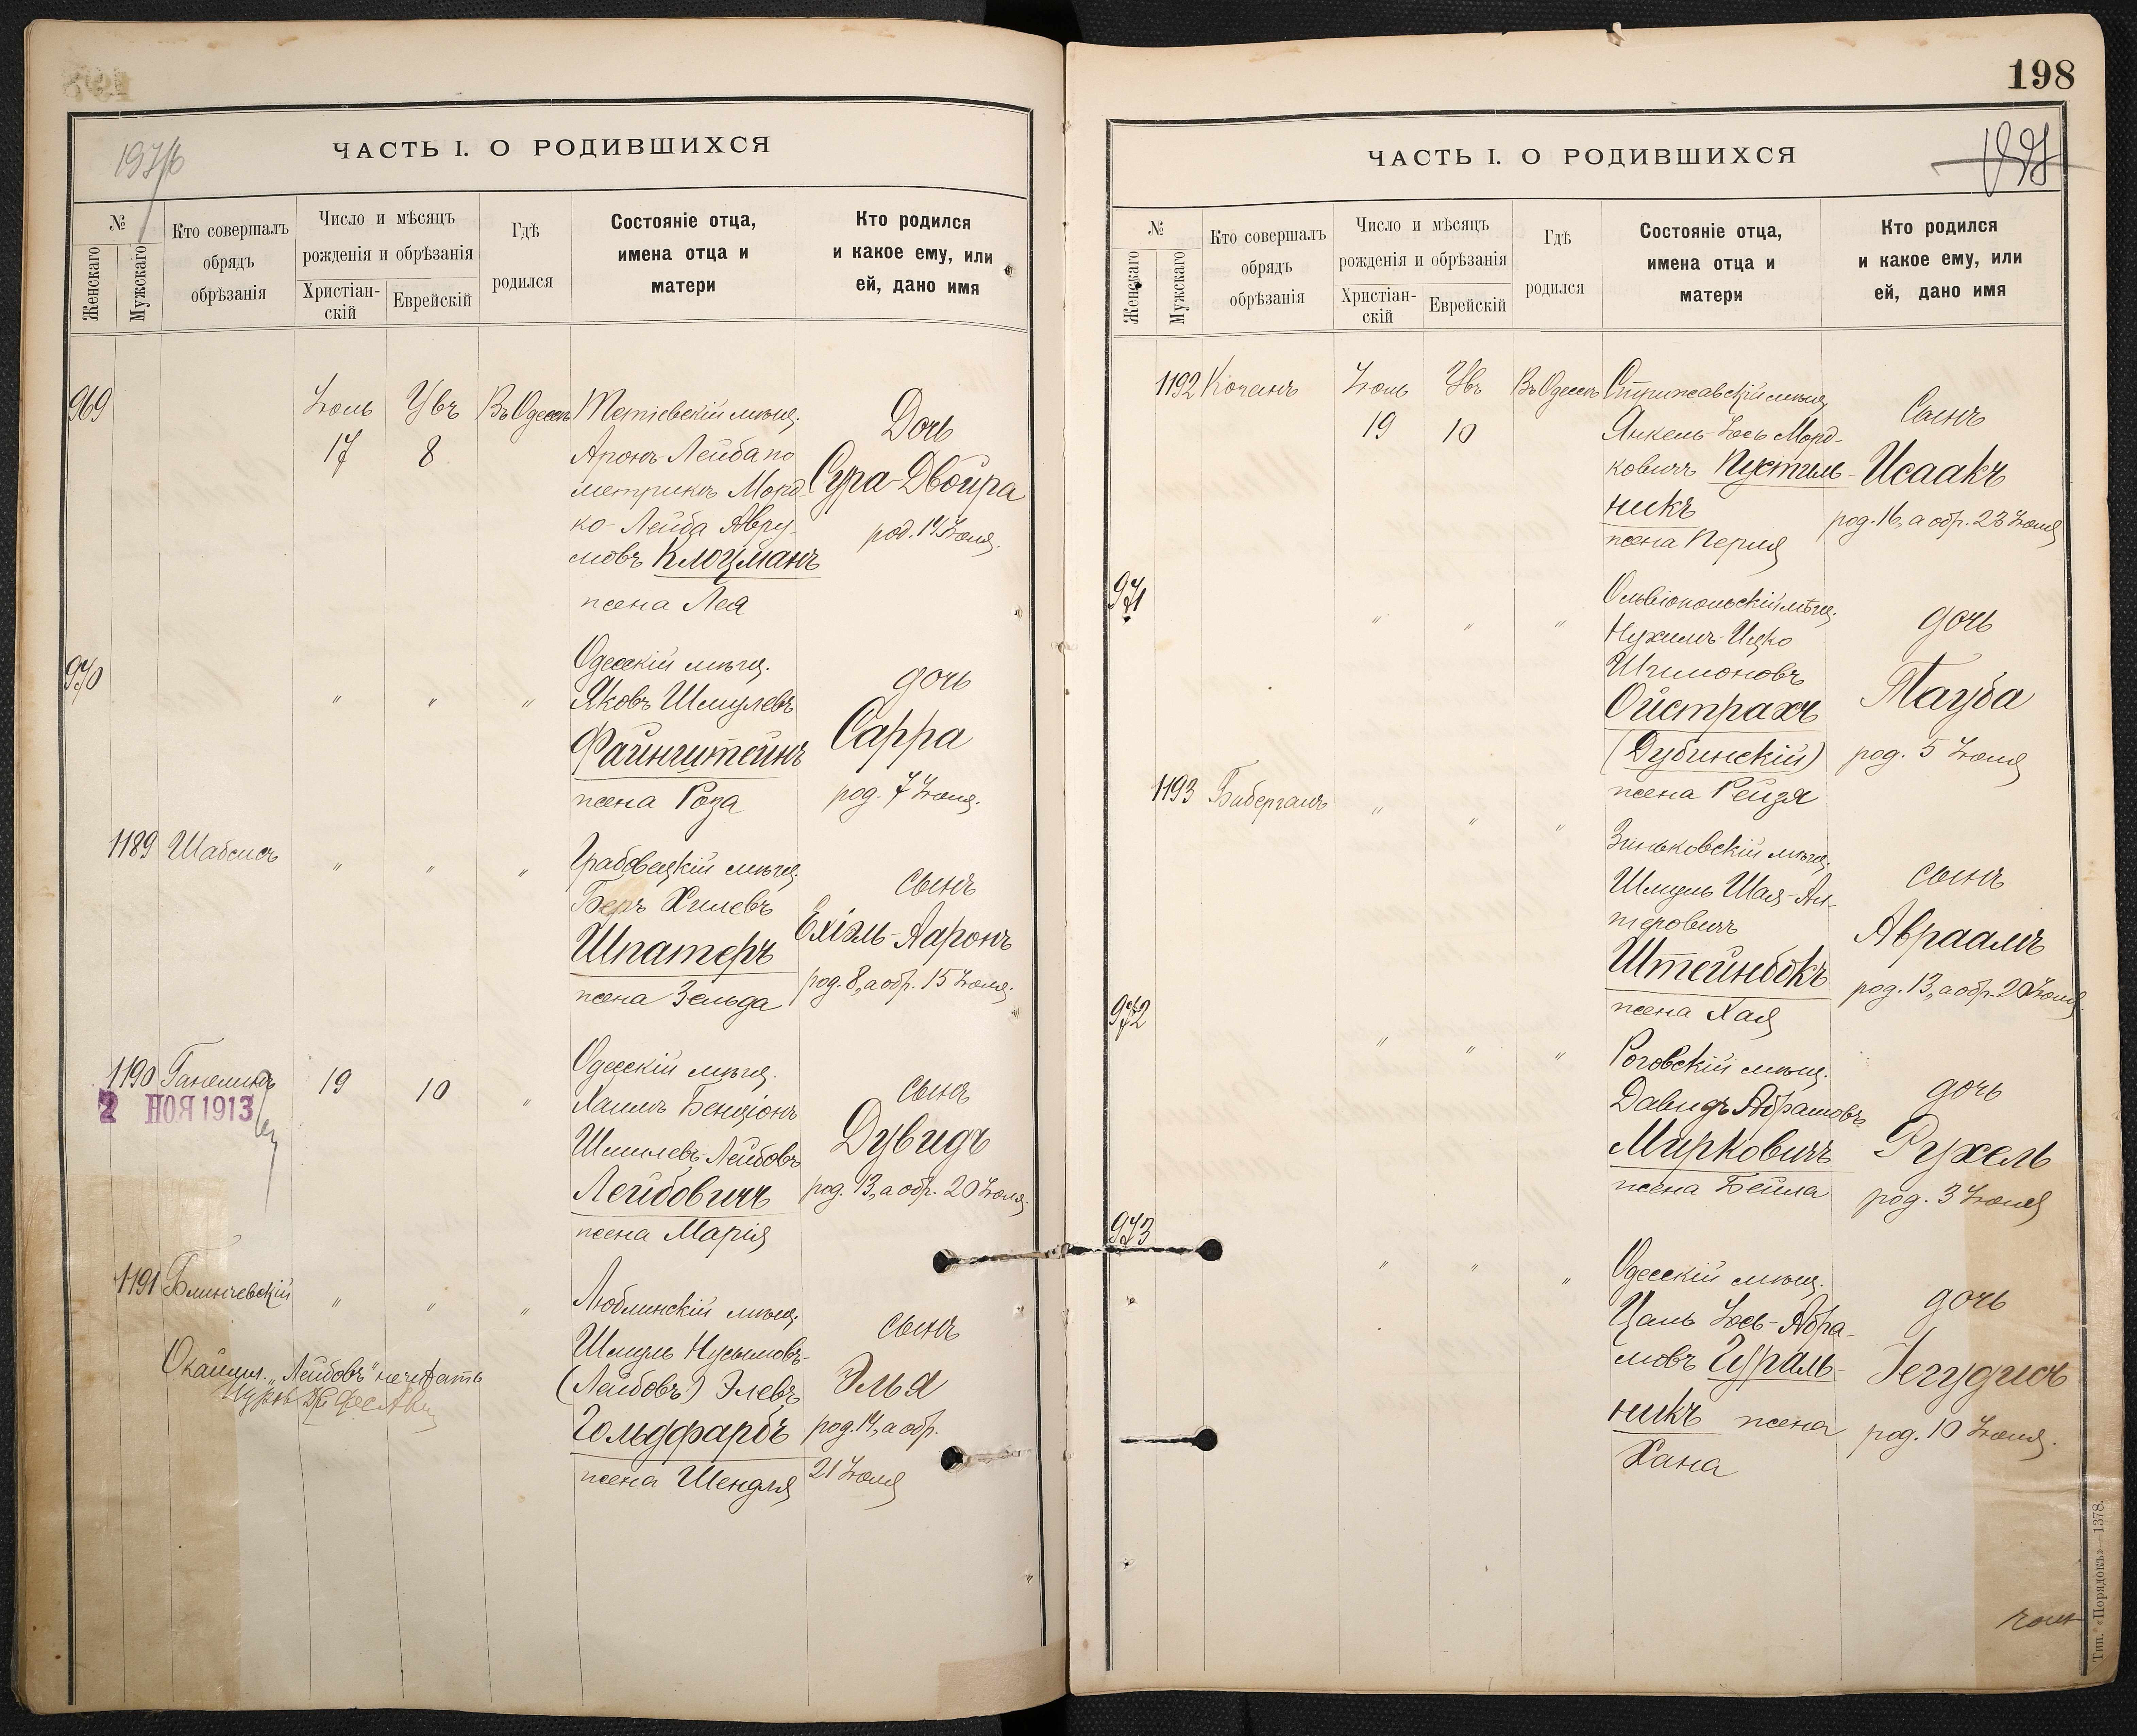 ЧАСТЬ I. О РОДИВШИХСЯ
№
Женскаго
Мужскаго
Кто совершалъ
обрядъ
обрѣзанія
Число и мѣсяцъ
рожденія и обрѣзанія
Христіан-
скій
Еврейскій
Гдѣ
родился
Состояніе отца,
имена отца и
матери
Кто родился
и какое ему, или
ей, дано имя
969
Іюль
17
Увъ
8
Въ Одессѣ
Тетіевскій мѣщ.
Аронъ-Лейба по
метрикѣ Морд-
ко-Лейба Авру-
мовъ Клоцманъ
жена Лея
Дочь
Сура-Двойра
род. 14 Іюля.
970
"
"
"
Одесскій мѣщ.
Яковъ Шмулевъ
Файнштейнъ
жена Роза
дочь
Сарра
род. 7 Іюля.
1189
Шабсисъ
"
"
"
Грабовецкій мѣщ.
Беръ Хилевъ
Шпатеръ
жена Зельда
сынъ
Ехіэль-Ааронъ
род. 8, а обр. 15 Іюля.
1190
Ганелинъ
2 НОЯ 1913
19
10
"
Одесскій мѣщ.
Хаимъ Бенціонъ
Шмилевъ-Лейбовъ
Лейбовичъ
жена Марія
сынъ
Дувидъ
род. 13, а обр. 20 Іюля.
1191
Блинчевскій
"
"
"
Люблинскій мѣщ.
Шмуль Нусымовъ-
(Лейбовъ) Элевъ
Гольдфарбъ
жена Шендля
сынъ
Элья
род. 14, а обр.
21 Іюля
"Лейбовъ" не читать
198
ЧАСТЬ I. О РОДИВШИХСЯ
№
Женскаго
Мужскаго
Кто совершалъ
обрядъ
обрѣзанія
Число и мѣсяцъ
рожденія и обрѣзанія
Христіан-
скій
Еврейскій
Гдѣ
родился
Состояніе отца,
имена отца и
матери
Кто родился
и какое ему, или
ей, дано имя
1192
Коганъ
Іюль
19
Увъ
10
Въ Одессѣ
Стрижавскій мѣщ.
Янкель-Іось Морд-
ковичъ Пустиль-
никъ
жена Перля
Сынъ
Исаакъ
род. 16, а обр. 23 Іюля
971
"
"
"
Ольвіопольскій мѣщ.
Нухимъ-Ицко
Шимоновъ
Ойстрахъ
(Дубинскій)
жена Рейзя
дочь
Тауба
род. 5 Іюля
1193
Бибергалъ
"
"
"
Зиньковскій мѣщ.
Шмуль Шая-Ал-
теровичъ
Штейнбокъ
жена Хая
сынъ
Авраамъ
род. 13, а обр. 20 Іюля
972
"
"
"
Роговскій мѣщ.
Давидъ Абрамовъ
Мирковичъ
жена Бейла
дочь
Рухель
род. 3 Іюля
973
"
"
"
Одесскій мѣщ.
Цаль Іось-Абра-
мовъ Гураль-
никъ жена
Хана
дочь
Іегудисъ
род. 10 Іюля.
Тип. «Порядокъ»—1378.